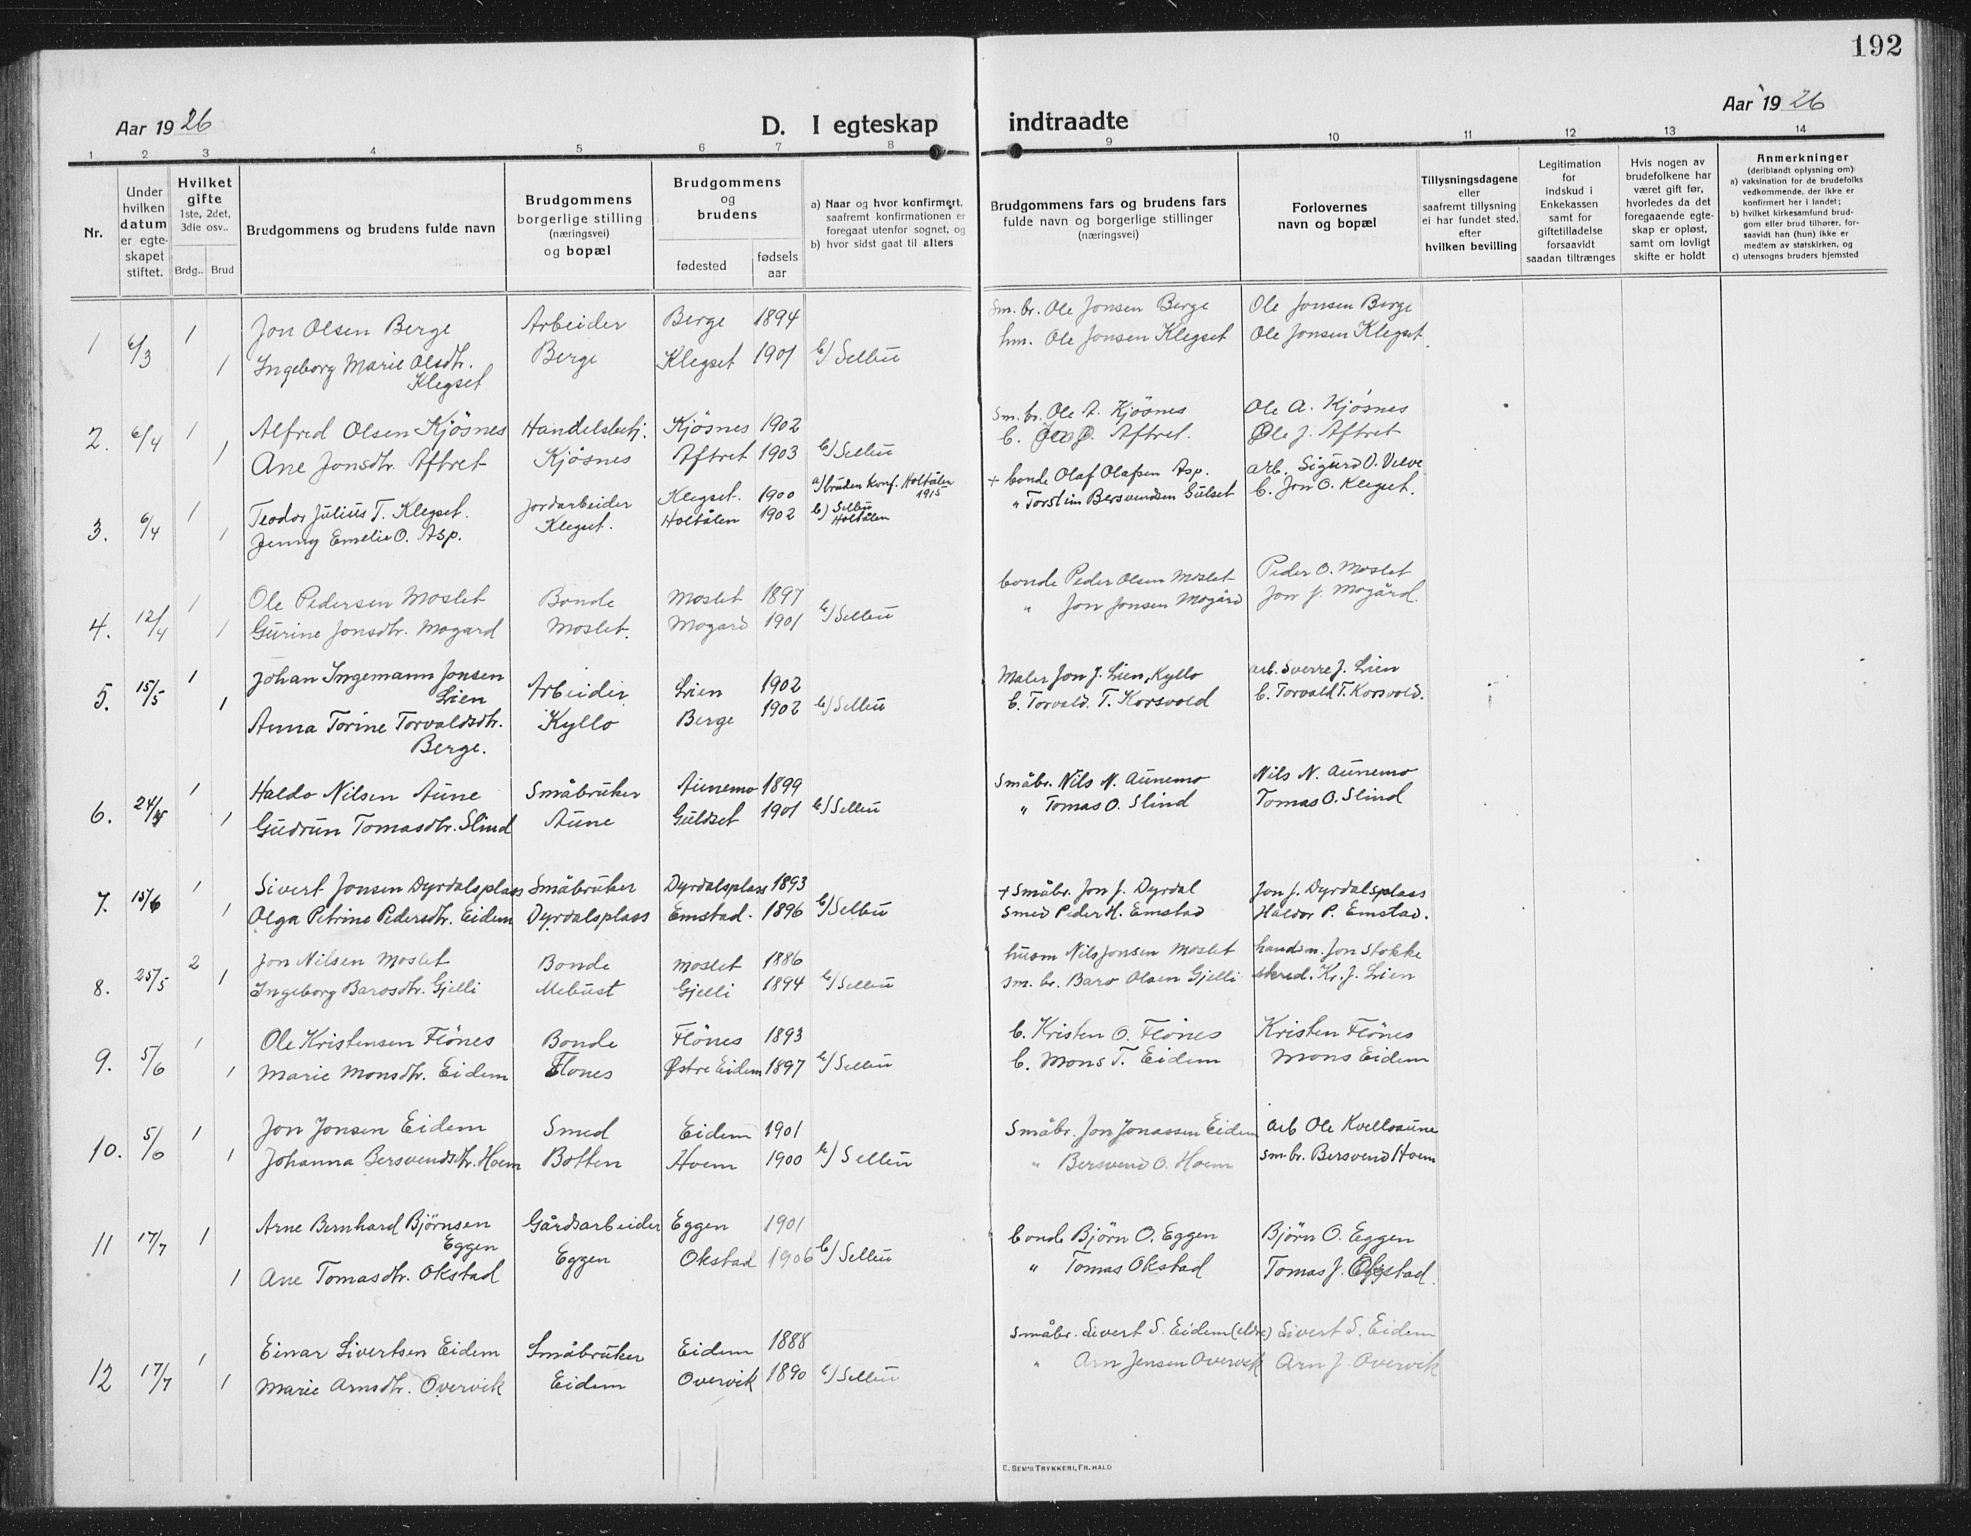 192
Aar 1926
D. I egteskap
indtraadte
Aar 1926
1 2 3 4 5 6 7 8 9 10 11 12 13 14
Nr.
Under hvilken datum er egteskapet stiftet.
Hvilket gifte
1ste, 2det, 3die osv..
Brdg.. Brud
Brudgommens og brudens fulde navn
Brudgommens borgerlige stilling (næringsvei) og bopæl
Brudgommens og brudens
fødested
fødsels aar
a) Naar og hvor konfirmert, saafremt konfirmationen er foregaat utenfor sognet, og
b) hvor sidst gaat til alters
Brudgommens fars og brudens fars fulde navn og borgerlige stillinger (næringsvei)
Forlovernes navn og bopæl
Tillysningsdagene eller saafremt tillysning ei har fundet sted, efter hvilken bevilling
Legitimation for indskud i Enkekassen samt for giftetilladelse forsaavidt saadan tiltrænges
Hvis nogen av brudefolkene har været gift før, hvorledes da det foregaaende egteskap er opløst, samt om lovligt skifte er holdt
Anmerkninger
(deriblandt oplysning om):
a) vaksination for de brudefolks vedkommende, der ikke er konfirmert her i landet;
b) hvilket kirkesamfund brudgom eller brud tilhører, forsaavidt han (hun) ikke er medlem av statskirken, og
c) utensogns bruders hjemsted
1 6/3 1 Jon Olsen Berge Arbeider Berge 1894 Sm. br. Ole Jonsen Berge Ole Jonsen Berge
1 Ingeborg Marie Olsdtr. Klegset Berge Klegset 1901 b) Selbu hm. Ole Jonsen Klegset Ole Jonsen Klegset.
2. 6/4 1 Alfred Olsen Kjøsnes Handelsbetj. Kjøsnes 1902 Sm. br. Ole A. Kjøsnes Ole A. Kjøsnes
1 Ane Jonsdtr. Aftret Kjøsnes Aftret 1903 b) Selbu b. Aftret. Ole J. Aftret
3. 6/4 1 Teodor Julius T. Klegset. Jordarbeider Klegset. 1900 a) bruden konf. Holtålen 1915 + bonde Olaf Olafsen Asp. arb. Sigurd O. Velve
1 Jenny Emelie O. Asp. Klegset. Holtålen 1902 b) Selbu Holtålen " Torstein Bersvendsen Gulset b. Jon O. Klegset.
4. 12/4 1 Ole Pedersen Moslet Bonde Moslet 1897 bonde Peder Olsen Moslet Peder O. Moslet
1 Gurine Jonsdtr. Mogard Moslet. Mogard 1901 b) Selbu " Jon Jonsen Mogård Jon J. Mogård.
5. 15/5 1 Johan Ingemann Jonsen Lien Arbeider Lien 1902 Maler Jon J. Lien, Kyllo arb. Sverre J. Lien
1 Anna Torine Torvaldsdtr. Berge. Kyllo Berge 1902 b) Selbu b. Torvald. T. Korsvold b. Torvald T. Korsvold.
6. 24/ 1 Haldo Nilsen Aune Småbruker Aunemo 1899 Småbr. Nils N. Aunemo Nils N. Aunemo
1 Gudrun Tomasdtr. Slind Aune Guldset 1901 b) Selbu " Tomas O. Slind Tomas O. Slind
7. 15/6 1 Sivert Jonsen Dyrdalsplass Småbruker Dyrdalsplass 1893 + Småbr. Jon J. Dyrdal Jon J. Dyrdalsplass
1 Olga Petrine Pedersdtr. Eidem Dyrdalsplass Emstad. 1896 b) Selbu Smed Peder H. Emstad Haldor P. Emstad.
8. 25/5 2 Jon Nilsen Moslet Bonde Moslet 1886 husm Nils Jonsen Moslet handsm. Jon Stokke
1 Ingeborg Barosdtr. Gjelli Mebust Gjelli 1894 b) Selbu sm. br. Baro Olsen Gjelli skred. Kr. J. Lien
9. 5/6 1 Ole Kristensen Flønes Bonde Flønes 1893 b. Kristen O. Flønes Kristen Flønes
1 Marie Monsdtr. Eidem Flones Østre Eidem 1897 b) Selbu b. Mons T. Eidem Mons Eidem
10. 5/6 1 Jon Jonsen Eidem Smed Eidem 1901 Småbr. Jon Jonassen Eidem arb Ole Kvelloaune
1 Johanna Bersvendsdtr. Hoem Botten Hoem 1900 b) Selbu " Bersvend O. Hoem sm. br. Bersvend Hoem
11 17/7 1 Arne Bernhard Bjørnsen Eggen Gårdsarbeider Eggen 1901 bonde Bjørn O. Eggen Bjørn O. Eggen
1 Ane Tomasdtr. Okstad Eggen Okstad 1906 b) Selbu " Tomas Okstad Tomas J. Okstad.
12 17/7 1 Einar Sivertsen Eidem Småbruker Eidem 1888 Småbr. Sivert S. Eidem (eldre) Sivert S. Eidem
1 Marie Arnsdtr. Overvik Eidem Overvik 1890 b) Selbu " Arn Jensen Overvik Arn J. Overvik
E. SEM'S TRYKKERI, FR. HALD